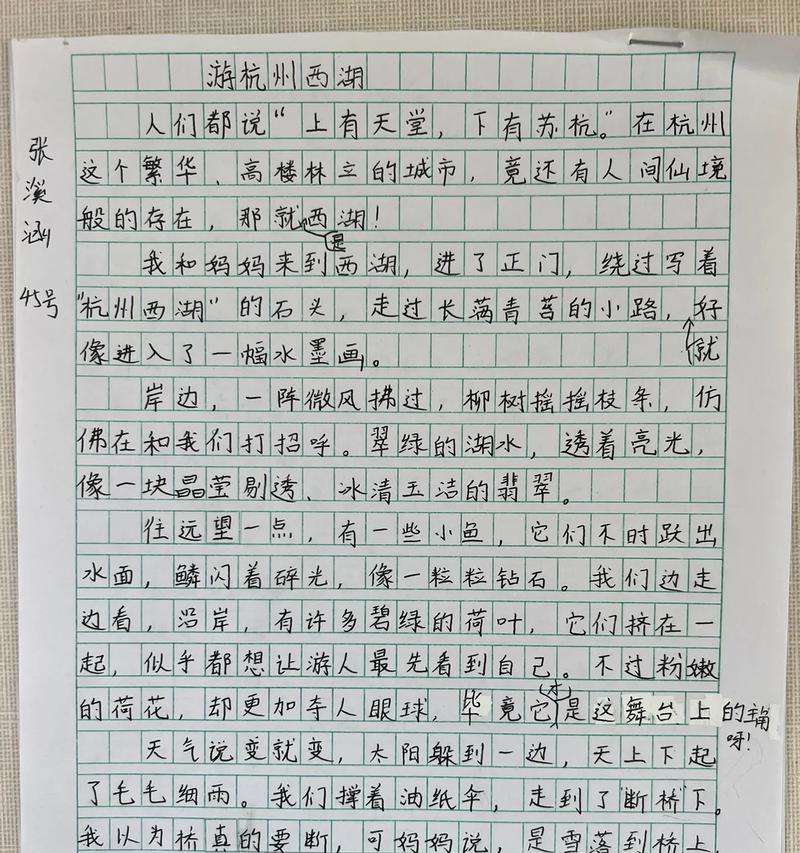 游杭州西湖
人们都说“上有天堂，下有苏杭。”在杭州
这个繁华、高楼林立的城市，竟还有人间仙境
般的存在，那就是西湖！
我和妈妈来到西湖，进了正门，绕过写着
“杭州西湖”的石头，走过长满青苔的小路，就好
像进入了一幅水墨画。
岸边，一阵微风拂过，柳树摇摇枝条，仿
佛在和我们打招呼。翠绿的湖水，透着亮光，
像一块晶莹剔透、冰清玉洁的翡翠。
往远望一点，有一些小鱼，它们不时跃出
水面，鳞闪着碎光，像一粒粒钻石。我们边走
边看，沿岸，有许多碧绿的荷叶，它们挤在一
起，似乎都想让游人最先看到自己。不过粉嫩
的荷花，却更加夺人眼球，毕竟它才是这舞台上的主角
呀！
天气说变就变，太阳躲到一边，天上下起
了毛毛细雨。我们撑着油纸伞，走到了“断桥”下。
我以为桥真的要断，可妈妈说，是雪落到桥上，
张溪涵
45号